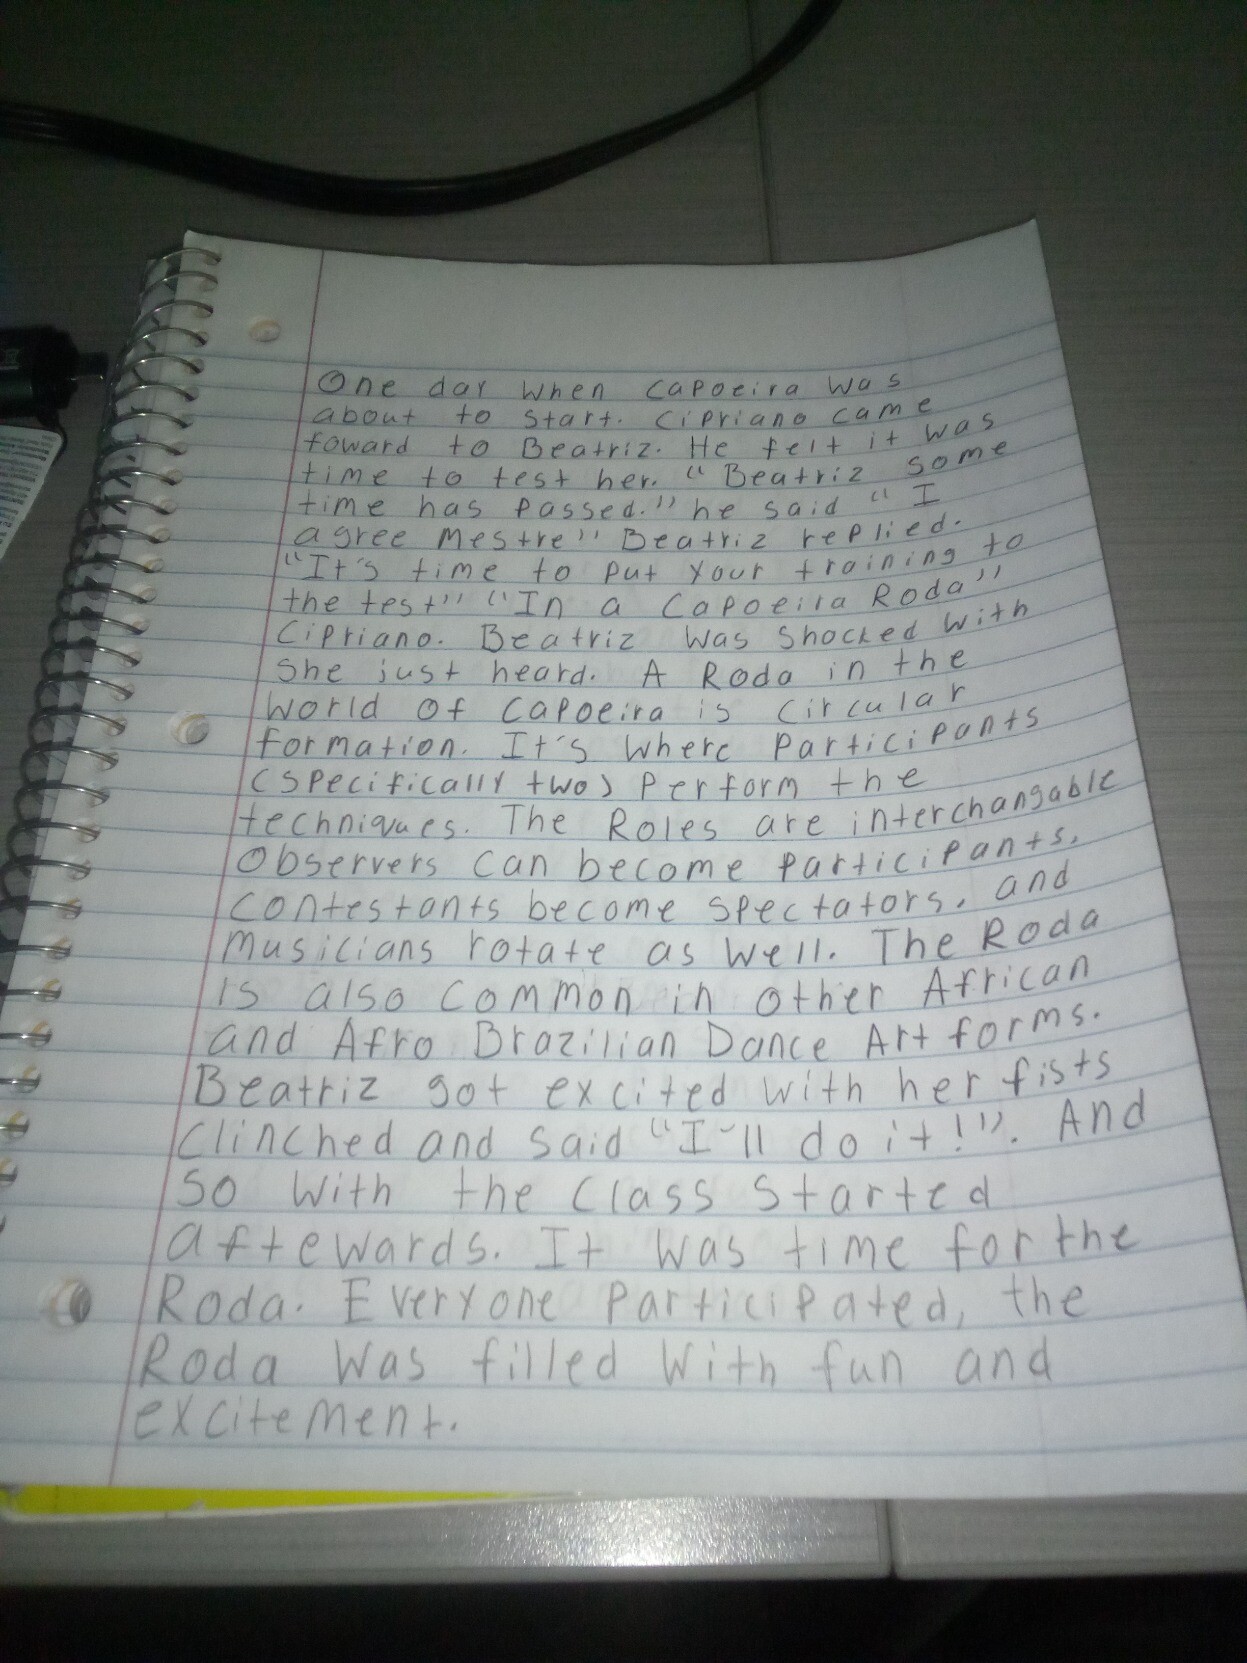 One day when Capoeira was
about to start. Cipriano came
foward to Beatriz. He felt it was
time to test her. "Beatriz some
time has passed." he said "I
agree Mestre" Beatriz replied.
"It's time to put your training to
the test" "In a Capoeira Roda"
Cipriano. Beatriz was shocked with
she just heard. A Roda in the
World of Capoeira is circular
formation. It's where participants
(specifically two) perform the
techniques. The Roles are interchangable
Observers can become participants,
contestants become spectators, and
musicians rotate as well. The Roda
is also common in other African
and Afro Brazilian Dance Art forms.
Beatriz got excited with her fists
clinched and said "I'll do it!". And
so with the class started
aftewards. It was time for the
Roda. Everyone participated, the
Roda was filled with fun and
excitement.